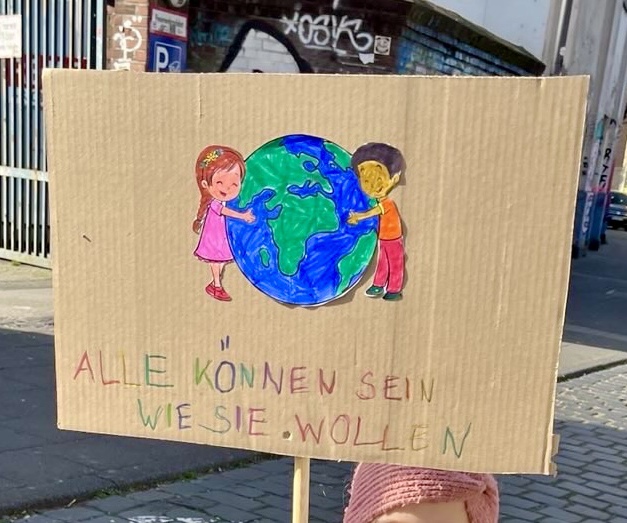 ALLE KÖNNEN SEIN
WIE SIE WOLLEN